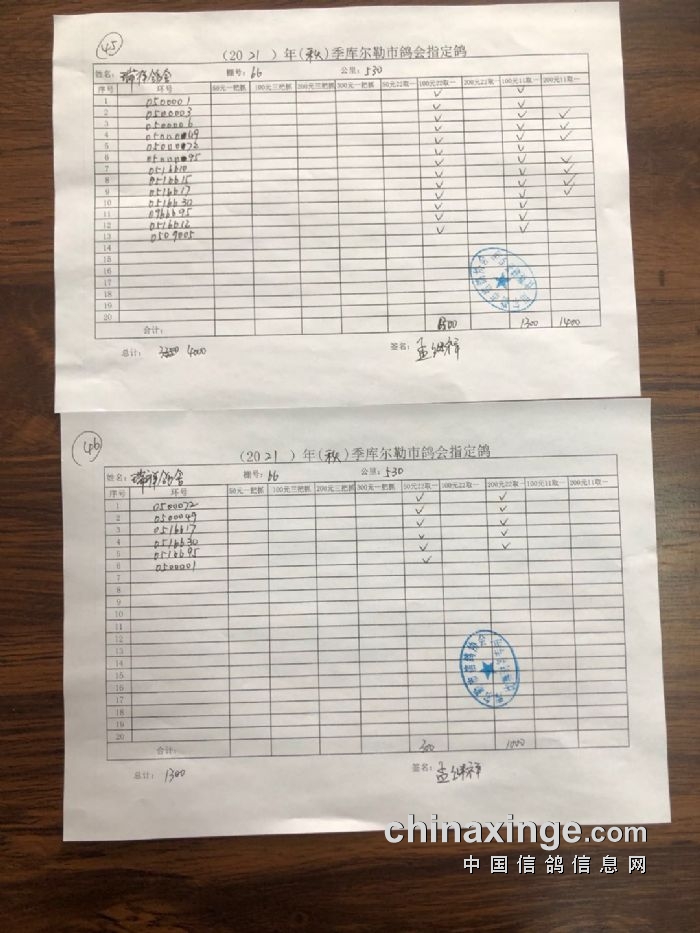 45
（2021）年（秋）季库尔勒市鸽会指定鸽
姓名：瑞祥鸽舍 棚号：66 公里：530
序号 环号 50元一把抓 100元三把抓 200元三把抓 300元一把抓 50元22取一 100元22取一 200元22取一 100元11取一 200元11取一
1 0500001 ✓ ✓
2 0500003 ✓ ✓ ✓
3 0500006 ✓ ✓ ✓
4 ✓ ✓ ✓
5 ✓ ✓
6 ✓ ✓ ✓
7 0516610 ✓ ✓ ✓
8 0516615 ✓ ✓ ✓
9 0516617 ✓ ✓ ✓
10 0516630 ✓ ✓
11 ✓ ✓
12 0516612 ✓ ✓
13 0509005 ✓ ✓
14
15
16
17
18
19
20
合计： 1300 1400
总计： 4000 签名：孟继祥
46
（2021）年（秋）季库尔勒市鸽会指定鸽
姓名：瑞祥鸽舍 棚号：66 公里：530
序号 环号 50元一把抓 100元三把抓 200元三把抓 300元一把抓 50元22取一 100元22取一 200元22取一 100元11取一 200元11取一
1 0500072 ✓ ✓
2 0500049 ✓ ✓
3 0516617 ✓ ✓
4 0516630 ✓ ✓
5 0516695 ✓ ✓
6 0500001 ✓
7
8
9
10
11
12
13
14
15
16
17
18
19
20
合计： 300 1000
总计： 1300 签名：孟继祥
chinaxinge.com
中国信鸽信息网